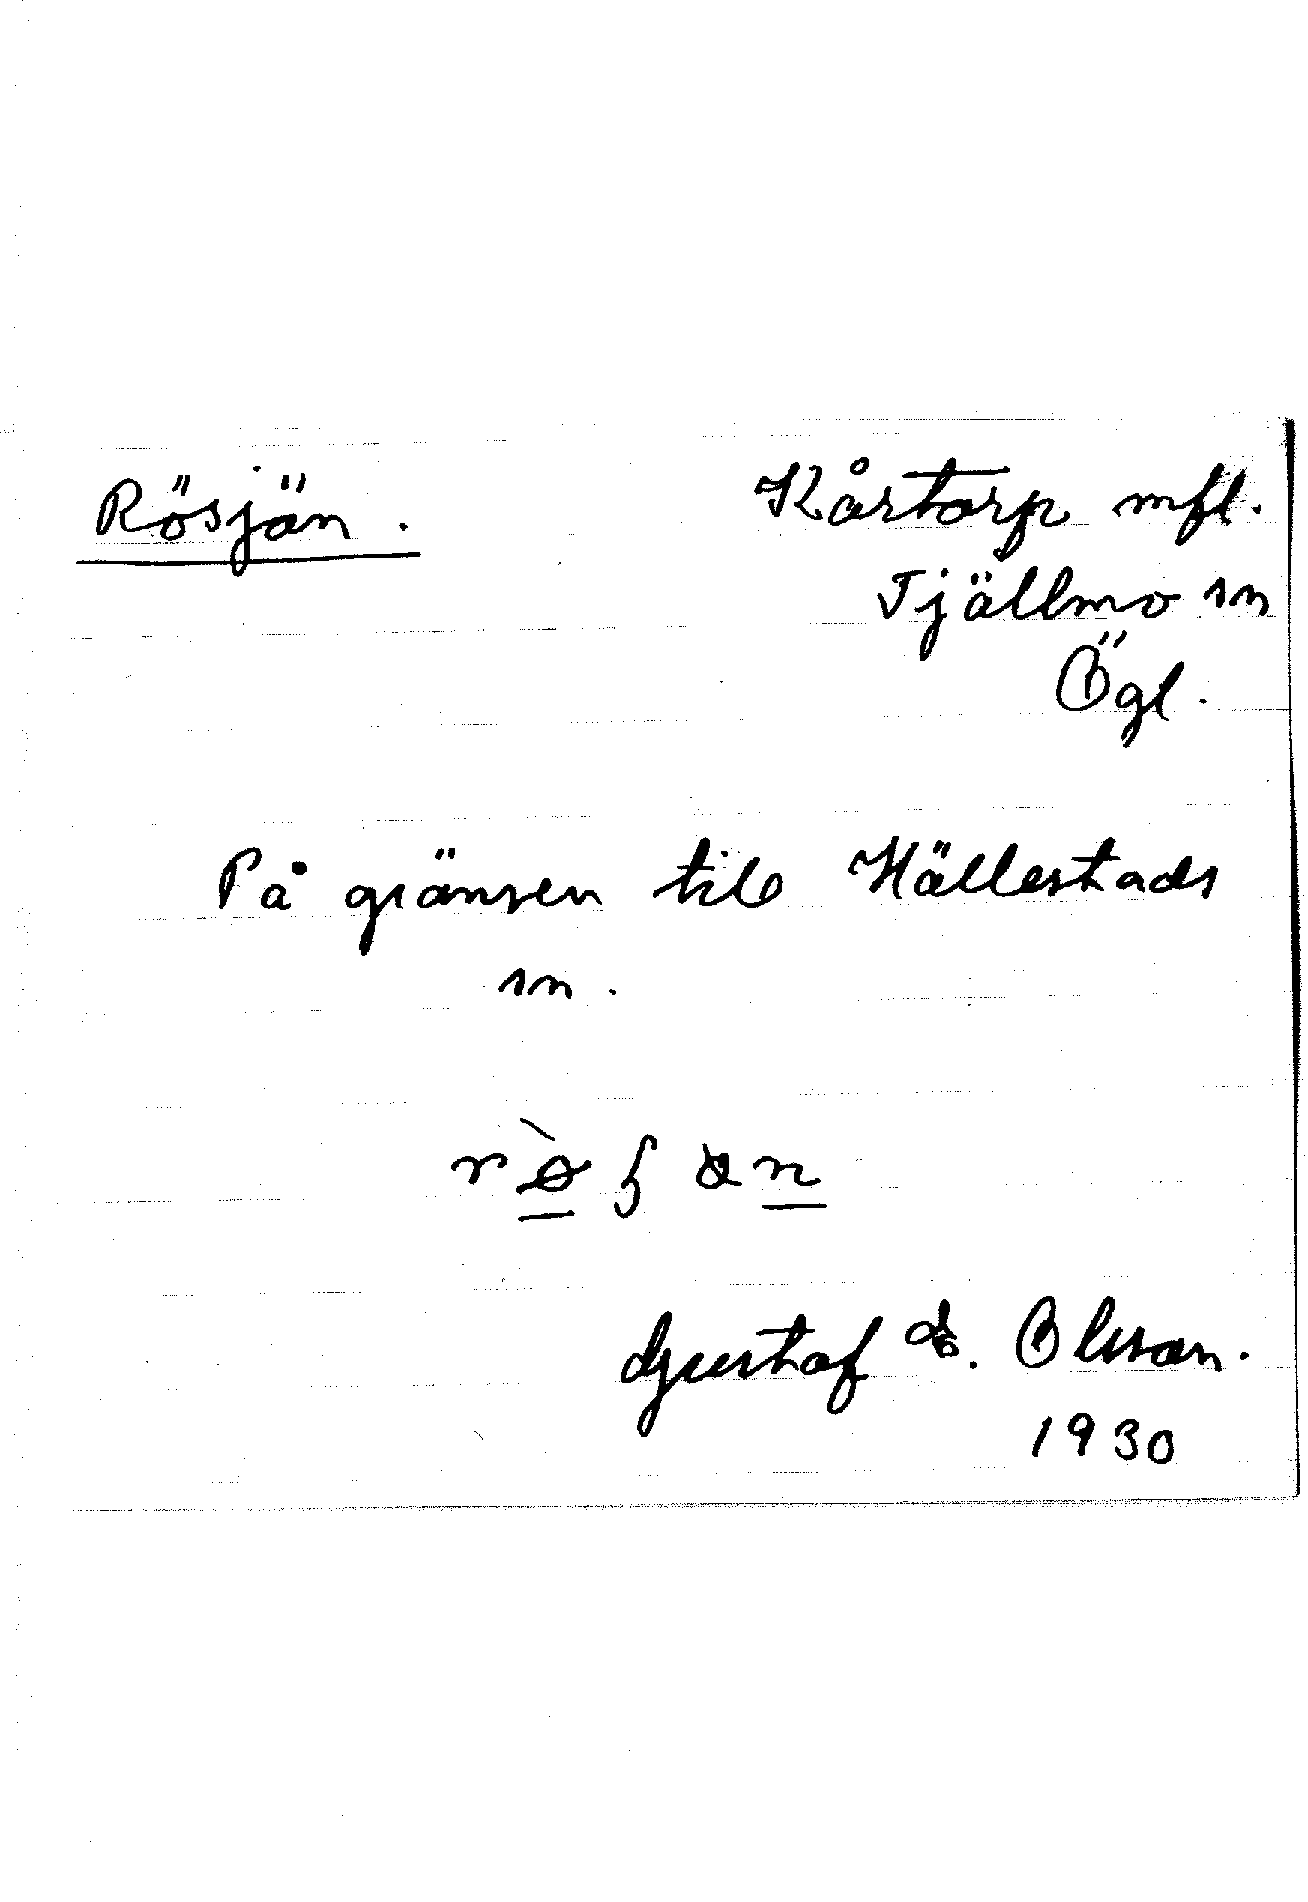 Rösjön.
Kårtorp mfl.
Tjällmo sn
Ögl.
På gränsen till Hällestads
sn.
Gustaf Olsson.
1930